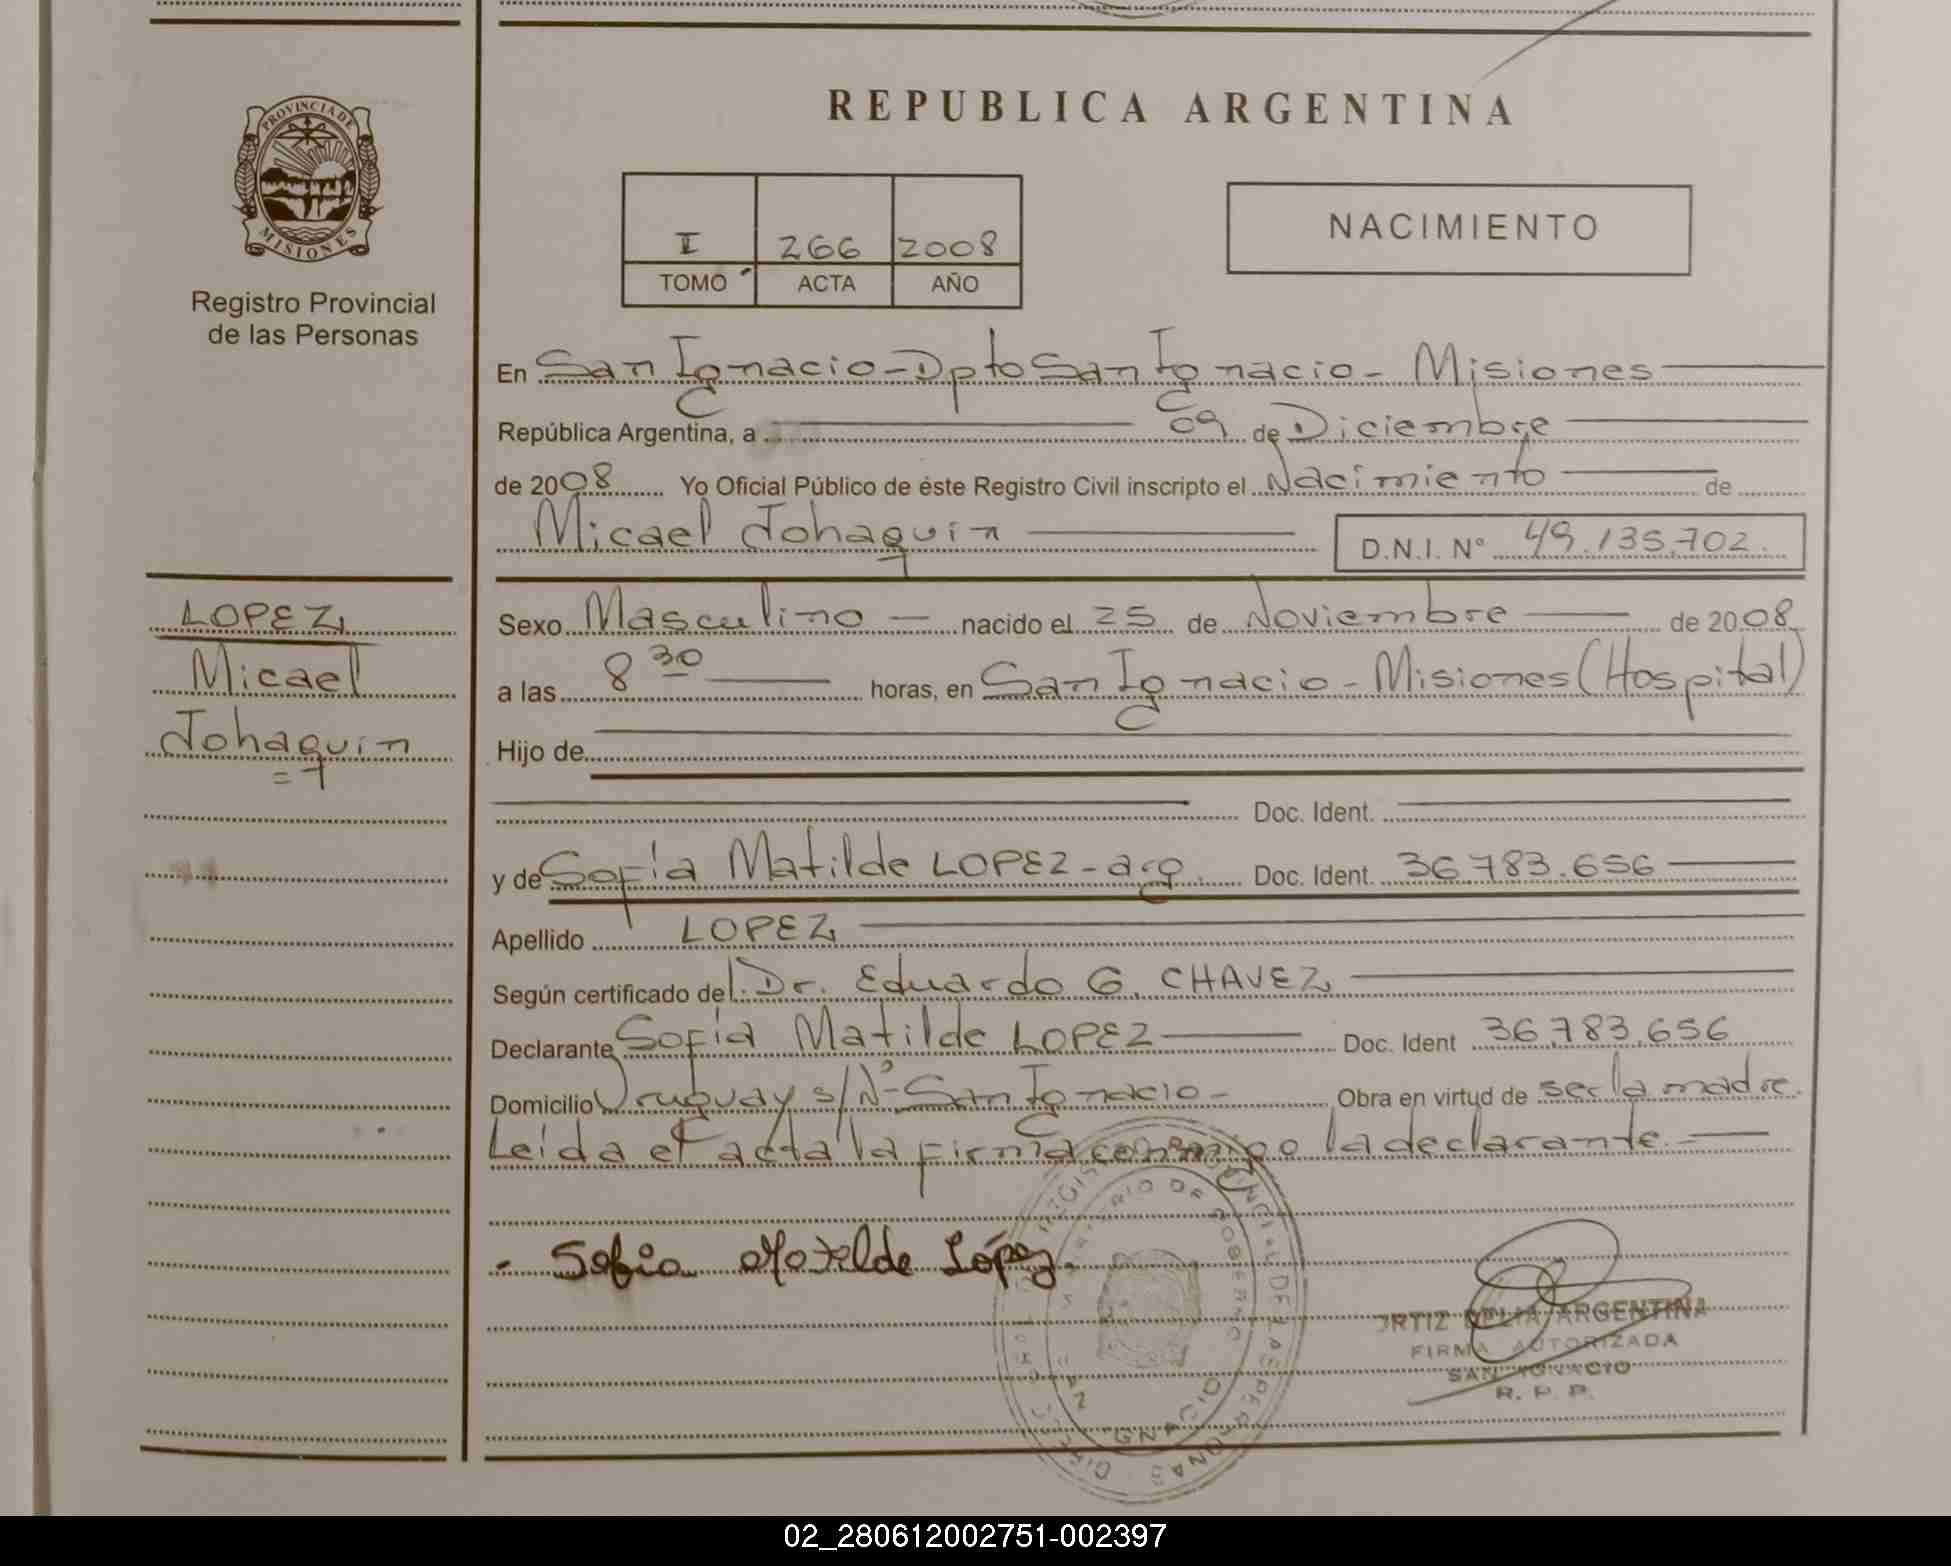 REPUBLICA ARGENTINA
PROVINCIA DE
MISIONES
Registro Provincial
de las Personas
I 266 2008
TOMO ACTA AÑO
NACIMIENTO
En San Ignacio - Dpto San Ignacio - Misiones
República Argentina, a 09 de Diciembre
de 2008 Yo Oficial Público de éste Registro Civil inscripto el Nacimiento de
Micael Johaquin D.N.I. N° 49.135.702.
LOPEZ,
Micael
Johaquin
Sexo Masculino nacido el 25 de Noviembre de 2008
a las 8 30 horas, en San Ignacio - Misiones (Hospital)
Hijo de
Doc. Ident.
y de Sofía Matilde LOPEZ - arg. Doc. Ident. 36.783.656
Apellido LOPEZ,
Según certificado del Dr. Eduardo G. CHAVEZ,
Declarante Sofía Matilde LOPEZ Doc. Ident 36.783.656
Domicilio Uruguay s/N° - San Ignacio - Obra en virtud de ser la madre.
Leída el acta la firma conmigo la declarante.
- Sofia Matilde López.
ORTIZ DELIA ARGENTINA
FIRMA AUTORIZADA
SAN IGNACIO
R. P. P.
02_280612002751-002397